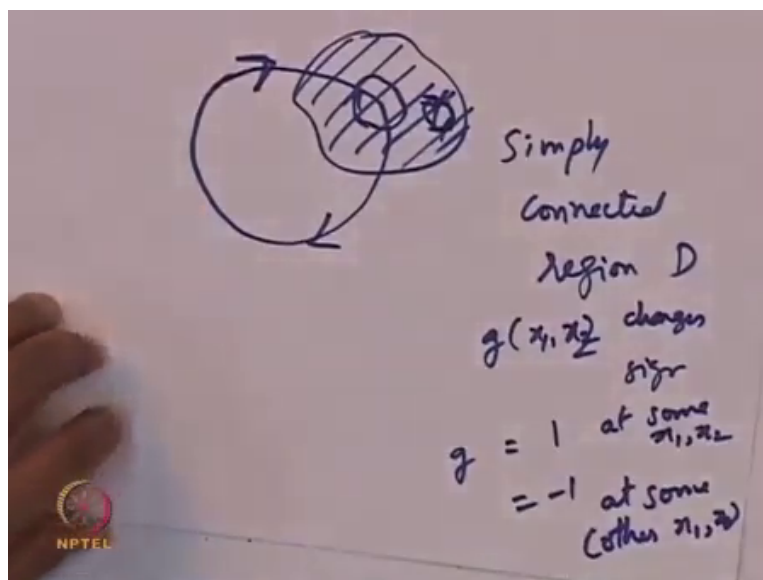 Simply
connected
region D
g(x₁, x₂) changes
sign
g = 1 at some
x₁, x₂
= -1 at some
(other x₁, x₂)
NPTEL